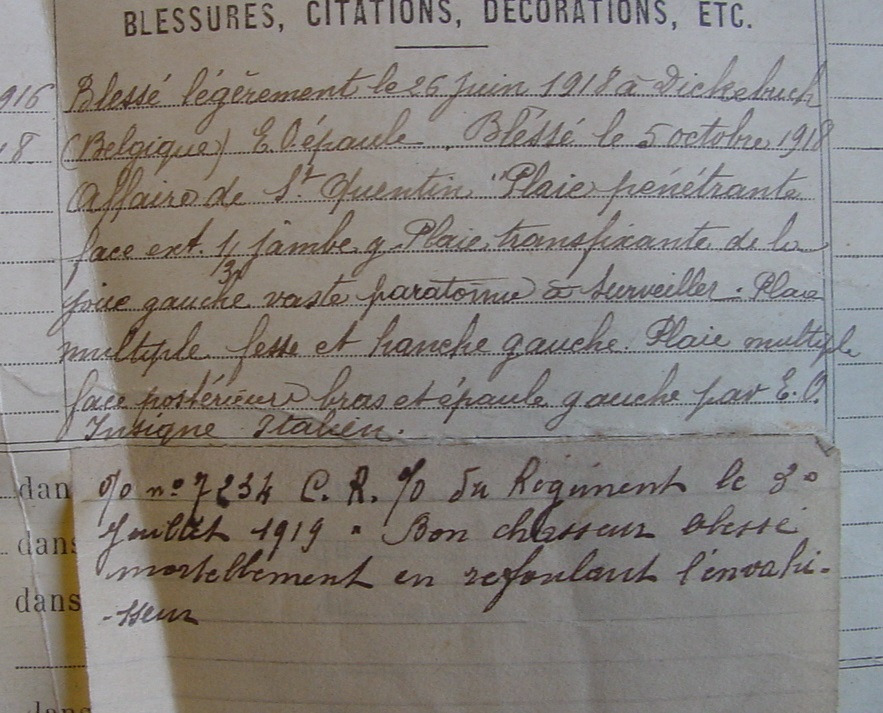 BLESSURES, CITATIONS, DÉCORATIONS, ETC.
916 Blessé légèrement le 26 Juin 1918 à Dickebuch
18. (Belgique) E. O épaule. Bléssé le 5 octobre 1918
Affaire de St Quentin "Plaie pénétrante
face ext. 1/3 jambe g. Plaie transfixante de la
joue gauche vaste à surveiller - Plaie
multiple fesse et hanche gauche. Plaie multiple
face postérieure bras et épaule gauche par E. O.
Insigne Italien.
dans % nº 7234 C. R. % du Régiment le 30
dans Juillet 1919 " Bon chasseur blessé
mortellement en refoulant l'envahi-
dans -sseur
dans